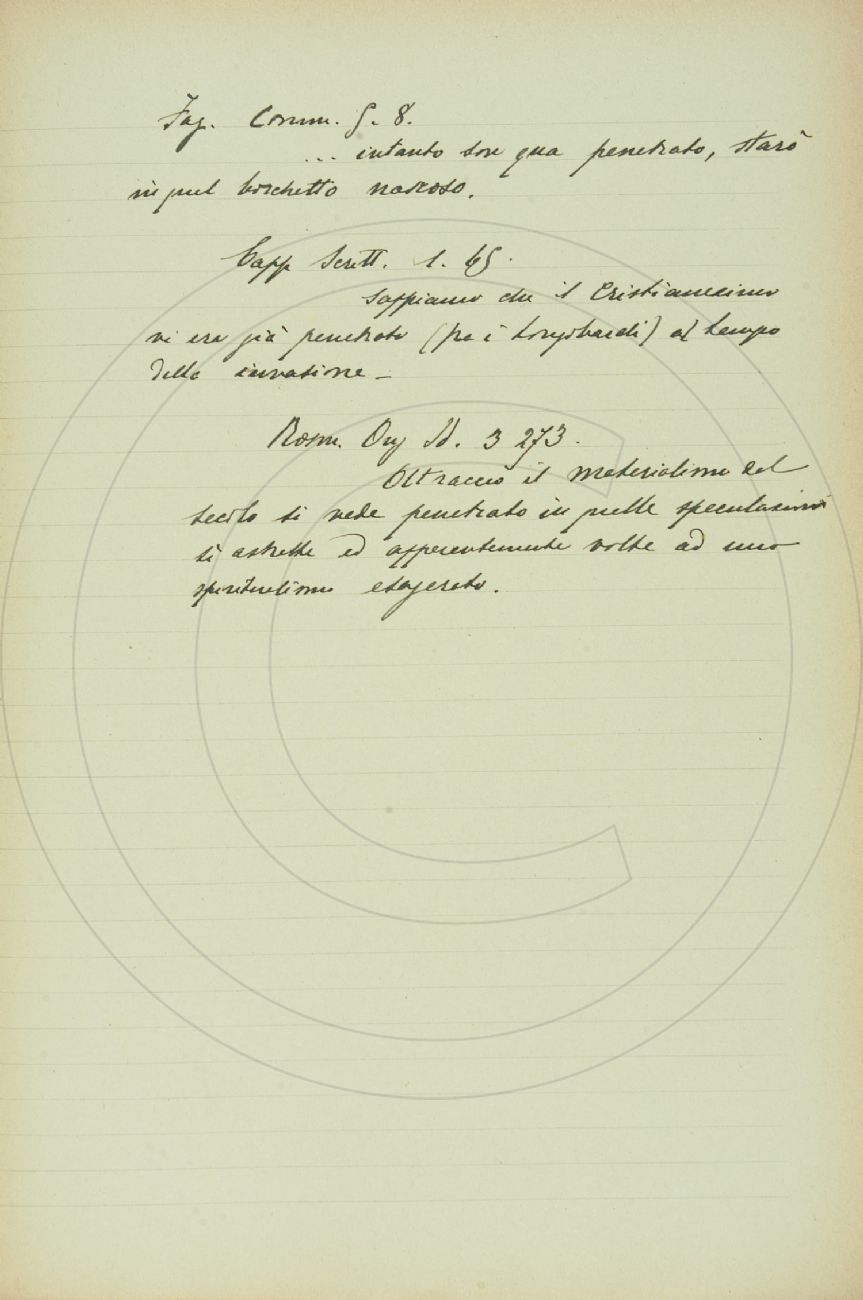 Fag. Comm. 5. 8.
... intanto son qua penetrato, starò
in quel boschetto nascoso.
Capp Scritt. 1. 65.
Sappiamo che il Cristianesimo
vi era già penetrato (fra i Longobardi) al tempo
della invasione –
Rosm. Orig Id. 3 273.
Oltracciò il materialismo del
secolo si vede penetrato in quelle speculazioni
sì astratte ed apparentemente volte ad uno
spiritualismo esagerato.